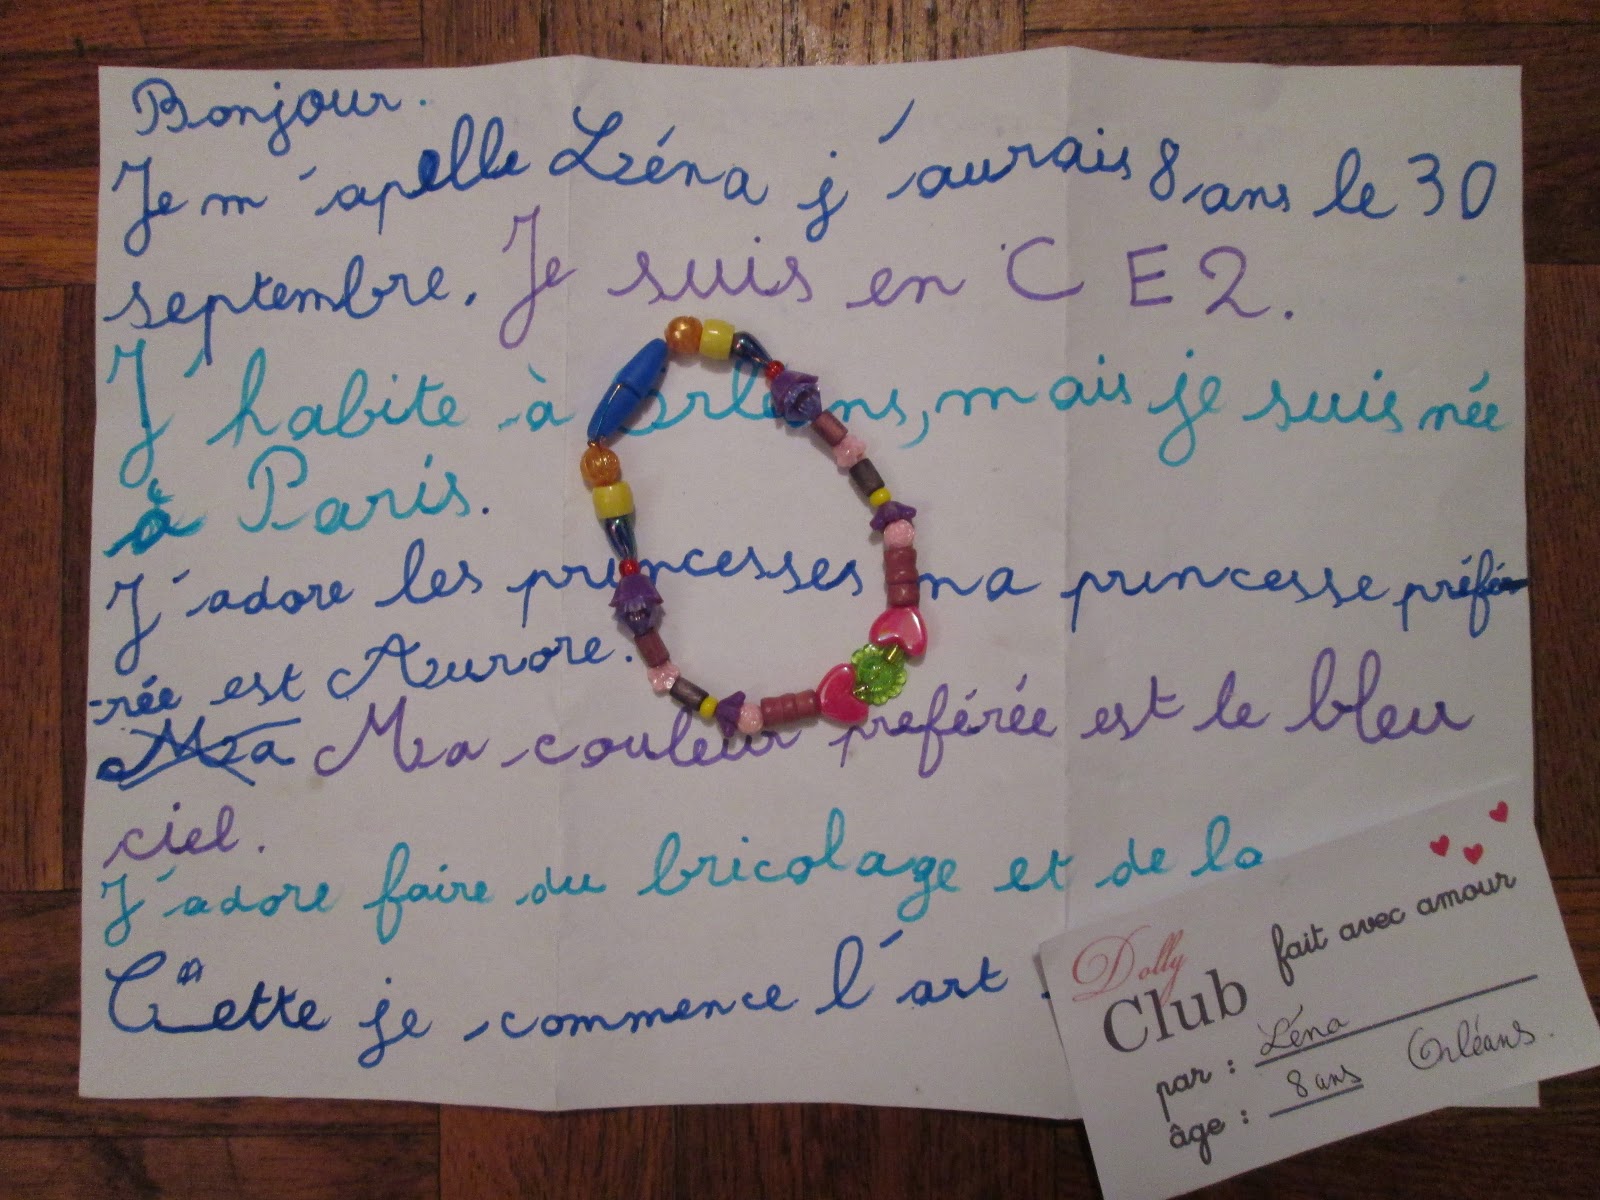 Bonjour.
Je m'apelle Léna j'aurais 8 ans le 30
septembre. Je suis en CE2.
J'habite à Orléans, mais je suis née
à Paris.
J'adore les princesses ma princesse préfé
-rée est Aurore.
Ma Ma couleur preférée est le bleu
ciel.
J'adore faire du bricolage et de la
Cette je commence l'art
Dolly
Club fait avec amour
par : Léna
âge : 8 ans Orléans.